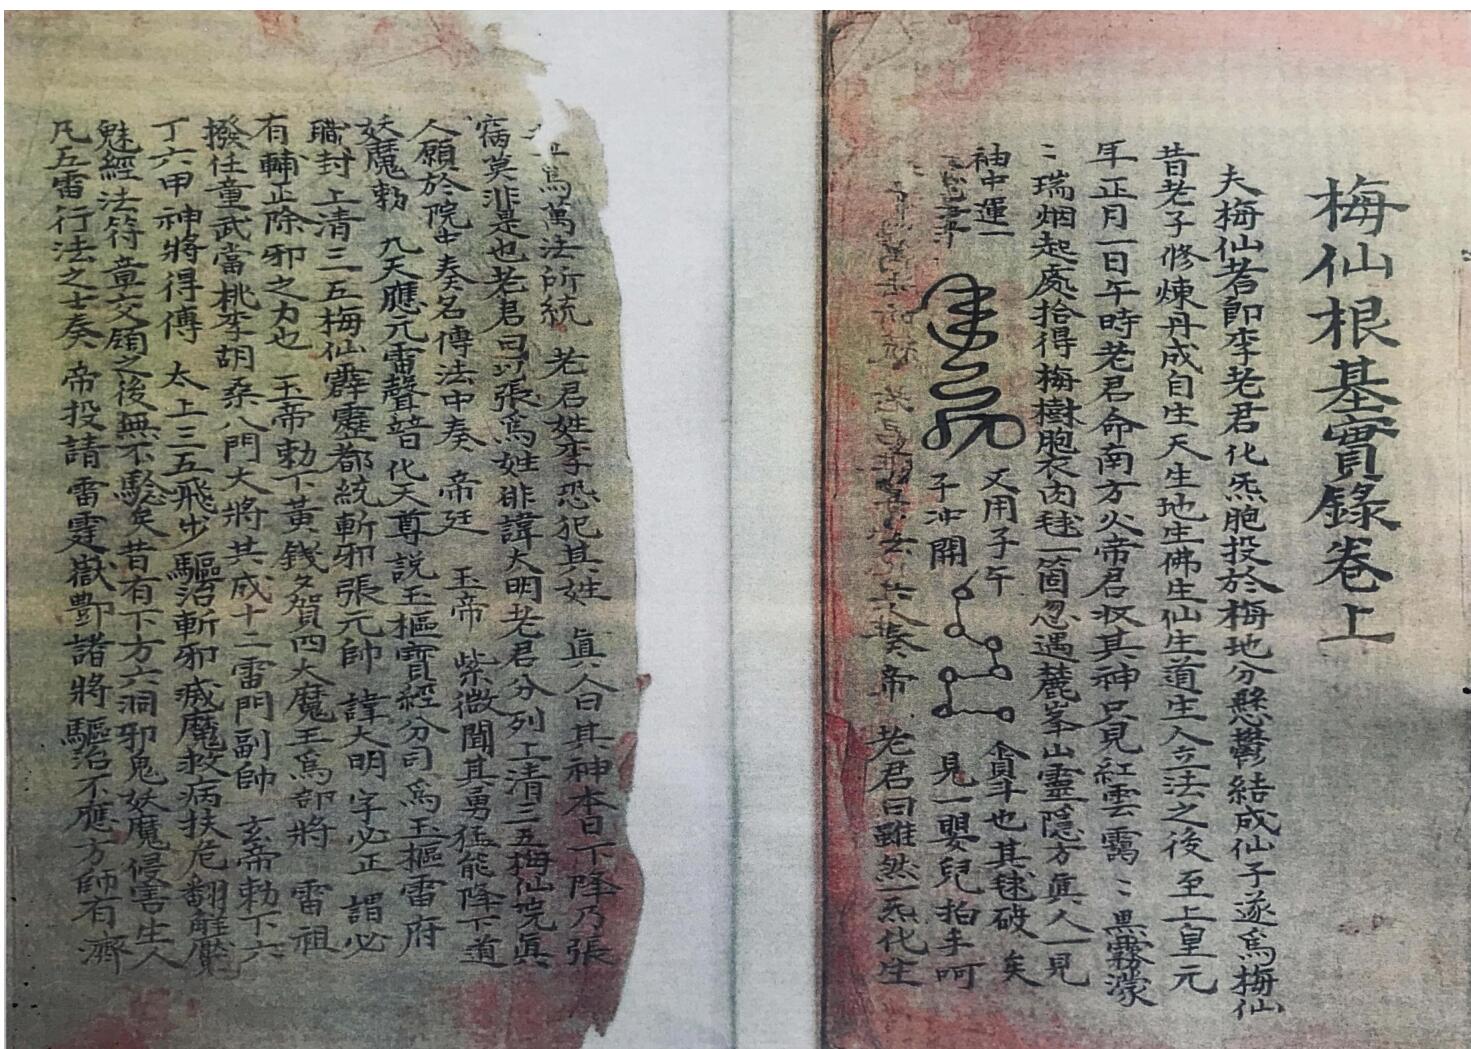 梅仙根基實錄卷上
夫梅仙者即李老君化炁胞投於梅地分懸鬱結成仙子遂為梅仙
昔老子修煉丹成自生天生地生佛生仙生道生人立法之後至上皇元
年正月一日午時老君命南方火帝君收其神只見紅雲靄〻黑霧濛
〻瑞烟起處拾得梅樹胞衣肉毬一箇忽遇麓峯山靈隱方真人一見
袖中運一
又用子午
子冲開
貪斗也其毬破矣
見一嬰兒拍手呵
老君曰雖然一炁化生
為萬法所統 老君姓李恐犯其姓 真人曰其神本日下降乃張
病莫非是也老君曰以張為姓俳諱大明老君分列上清三五梅仙院真
人願於院中奏名傳法中奏 帝廷 玉帝 紫微聞其勇猛能降下道
妖魔勅 九天應元雷聲普化天尊説玉樞寶經分司為玉樞雷府
職封 上清三五梅仙霹靂都統斬邪張元帥 諱大明字必正 謂必
有輔正除邪之力也 玉帝勅下黃錢夕賀四大魔王為部將 雷祖
撥任童武當桃李胡桑八門大將共成十二雷門副帥 玄帝勅下六
丁六甲神將得傳 太上三五飛步 驅治斬邪滅魔救病扶危翻解魘
魅經法符章交領之後無不驗矣昔有下方六洞邪鬼妖魔侵害生人
凡五雷行法之士奏 帝投請雷霆嶽酆諸將驅治不應方師有濟